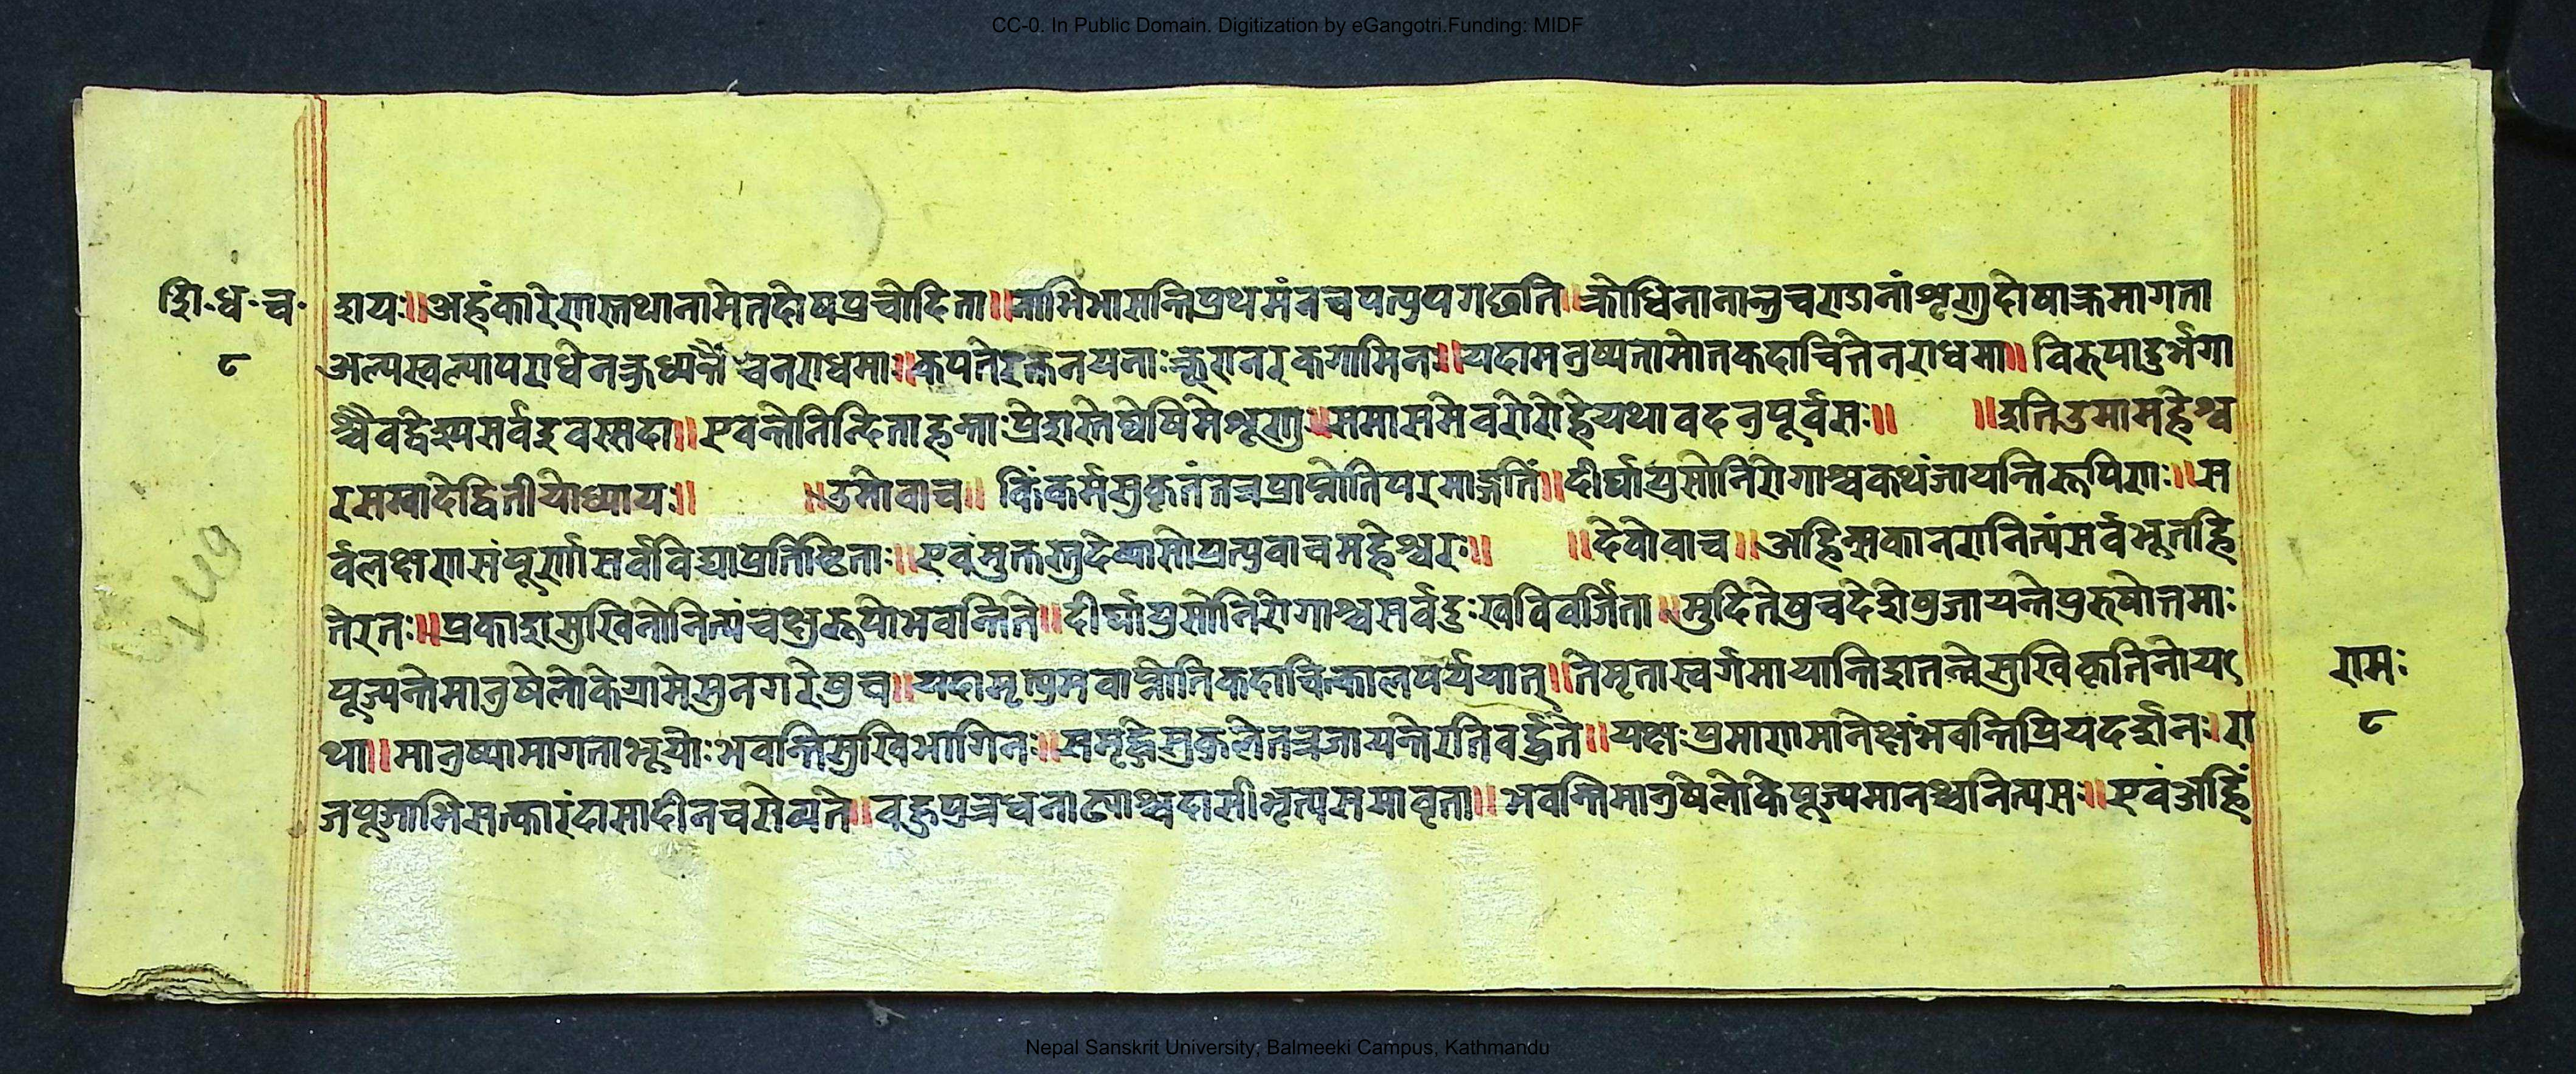 CC-0. In Public Domain. Digitization by eGangotri.Funding: MIDF
शि॰ध॰च॰
८
शयः॥अहंकारेणास्तथानामेतदोषप्रचोदिता॥नाभिभासन्तिप्रथमंनचपत्युपगछति॥क्रोधिनानान्तुचराडानांशृणुदोषाक्रमागता
अल्पस्वल्यापराधेनक्रुध्यन्तैचनराधमाः॥कपतेरक्तनयनाःक्रूरानरकगामिनः॥यदामनुष्यतामोतकदाचित्तेनराधमा॥विरुपादुर्भगा
श्चैवद्वेश्यसर्वइवस्सदा॥एवन्तेनिन्दिताहृन्ताःप्रेशस्तेघ्वेषिमेशृणु॥समासमेवरोरोहेयथावदनुपूर्वसः॥ ॥इतिउमामहेश्व
रसम्वादेद्वितीयोध्यायः॥ ॥उमोवाच॥ किंकर्मसुकृतंतत्रप्राप्नोतिपरमाङ्गतिं॥दीर्घायुसोनिरोगाश्चकथंजायन्तिरूपिणः॥स
र्वलक्षणसंपूर्णासर्वविद्याप्रतिष्टिताः॥एवंमुक्तस्तुदेव्यासोप्रत्युवाचमहेश्वरः॥ ॥देवोवाच॥अहिंम्सकानरानित्यंसर्वभूतहि
तेरतः॥प्रकाशसुखिनोनित्यंचक्षुरूपोभवन्तिते॥दीर्घायुसोनिरोगाश्चसर्वदुःखविवर्जिता॥मुदितेषुचदेशेषुजायन्तेपुरुषोत्तमाः
पूज्यन्तेमानुषेलोकेग्रामेसुनगरेषुच॥यदामृत्युमवाप्नोतिकदाचित्कालपर्ययात्॥तेमृतास्वर्गमायान्तिशतन्मेसुखिकृतिनोय
था॥मानुष्यामागताभूयोःभवन्तिसुखिभागिनः॥समृद्धिसुकुलेतत्रजायन्तेरतिवर्द्धते॥यक्षःप्रमाणमानेक्षंभवन्तिप्रियदर्शनः।रा
जपूजाभिसत्कारंदासादीनचसेव्यते॥वहुपुत्रधनाढ्याश्चदासीभृत्यसमावृता॥भवन्तिमानुषेलोकेपूज्यमानश्चनित्यसः॥एवंअहिं
रामः
८
Nepal Sanskrit University, Balmeeki Campus, Kathmandu